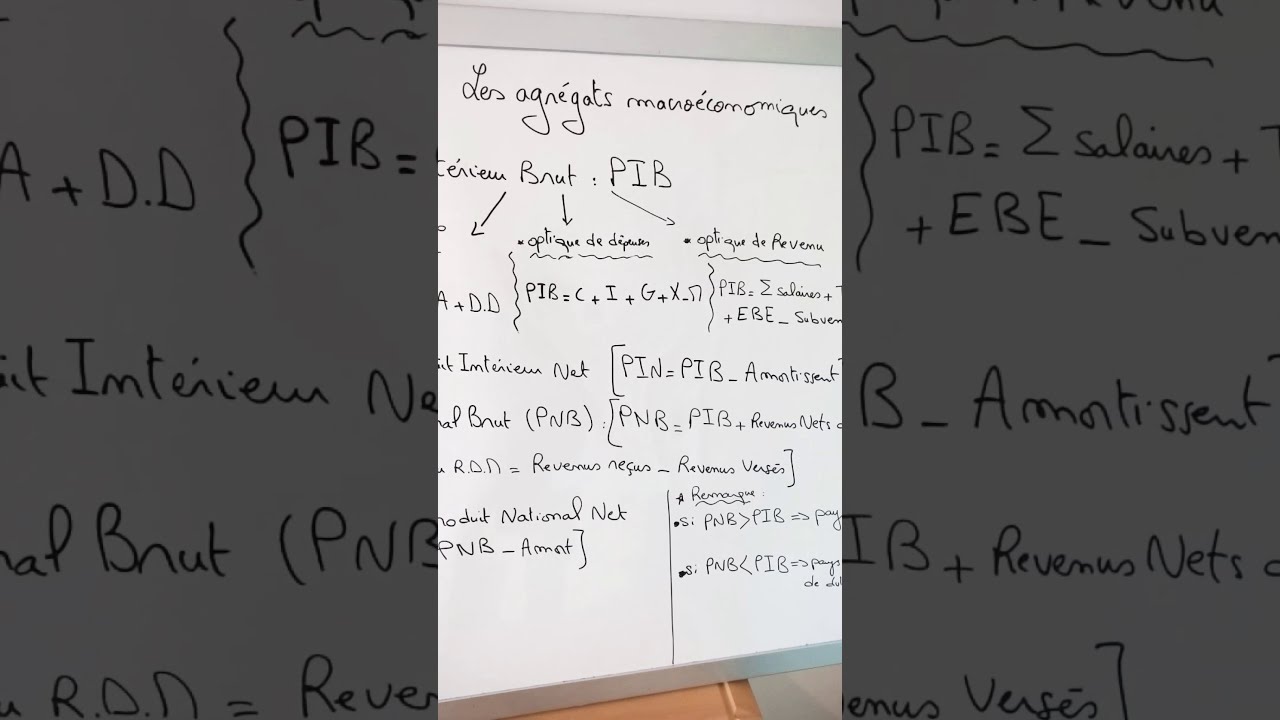 Les agrégats macroéconomiques
térieur Brut : PIB
* optique de dépenses * optique de Revenu
A + D.D PIB = C + I + G + X - M PIB = Σ salaires + T
+ EBE - Subven
it Intérieur Net [PIN = PIB - Amortissent]
nal Brut (PNB) : [PNB = PIB + Revenus Nets d
R.D.M = Revenus reçus - Revenus Versés]
* Remarque :
roduit National Net
. si PNB > PIB => pay
PNB - Amort]
. si PNB < PIB => pays
de du